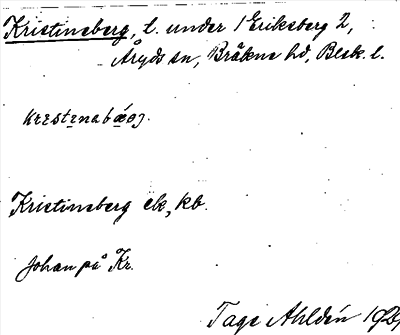 Kristineberg, l. under 1 Eriksberg 2,
Åryds sn, Bräkne hd, Blek. l.
krestinabǽrj.
Kristineberg ek, kb.
Johan på Kr.
Tage Ahldén